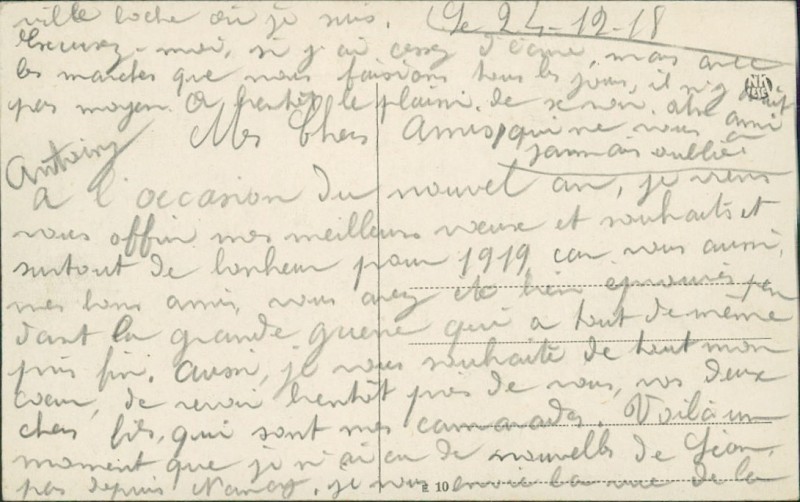 ville boche où je suis. Le 24-12-18
Excusez-moi, si j'ai cessez d'écrire, mais avec
les marches que nous faisions tous les jours, il n'y avait
pas moyen. A bientôt le plaisir de se voir. otre ami
Mes Chers Amis, qui ne vous a
jamais oublié
Antoiny
A l'occasion du nouvel an, je viens
vous offrir mes meilleurs vœux et souhaits et
surtout de bonheur pour 1919 car vous aussi,
mes bons amis, vous avez été bien eprouvés pen
dant la grande guerre qui a tout de même
pris fin. Aussi, je vous souhaite de tout mon
cœur, de revoir bientôt près de vous, vos deux
chers fils, qui sont mes camarades. Voilà un
moment que je n'ai eu de nouvelles de Léon,
pas depuis Nancy. je vous envie la vue de la
R 10